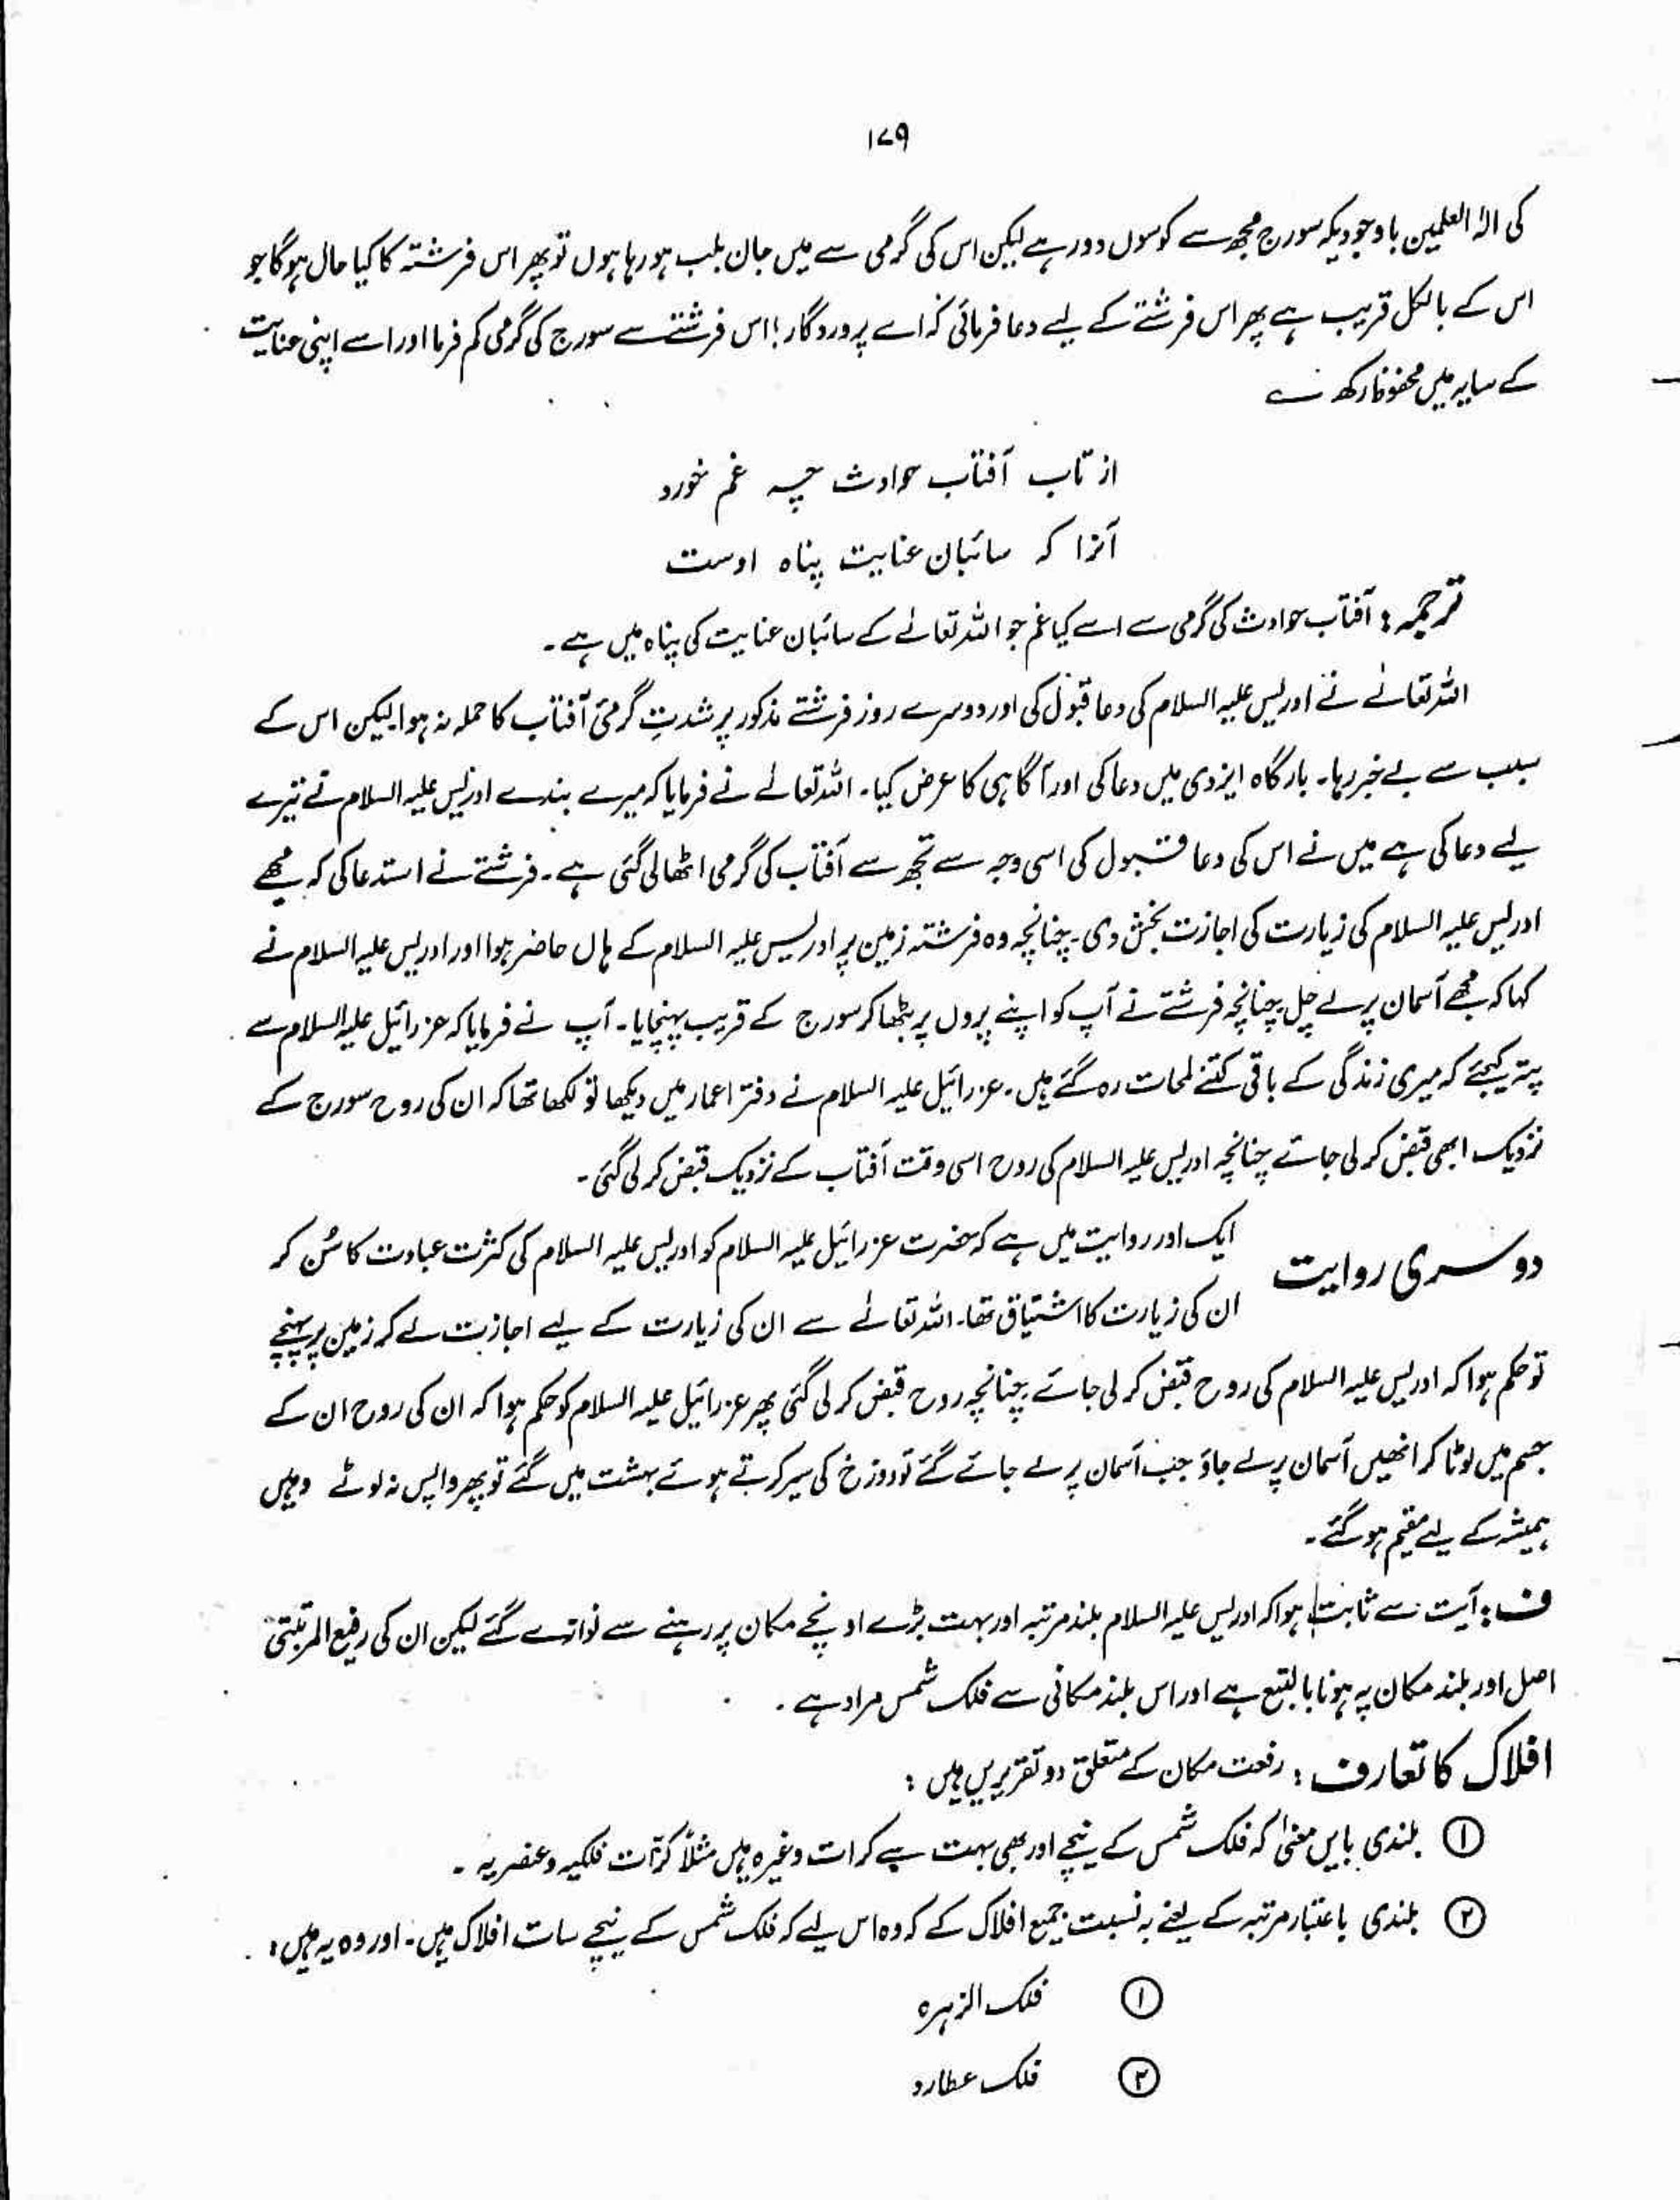 ۱۷۹
کی الہ العلمین باوجودیکہ سورج مجھ سے کوسوں دور ہے لیکن اس کی گرمی سے میں جان بلب ہو رہا ہوں تو پھر اس فرشتہ کا کیا حال ہوگا جو
اس کے بالکل قریب ہے پھر اس فرشتے کے لیے دعا فرمائی کہ اے پروردگار! اس فرشتے سے سورج کی گرمی کم فرما اور اسے اپنی عنایت
کے سایہ میں محفوظ رکھ ؎
از تاب آفتاب حوادث چہ غم خورد
آنرا کہ سائبان عنایت پناہ اوست
ترجمہ: آفتاب حوادث کی گرمی سے اسے کیا غم جو اللہ تعالےٰ کے سائبان عنایت کی پناہ میں ہے۔
اللہ تعالےٰ نے ادریس علیہ السلام کی دعا قبول کی اور دوسرے روز فرشتے مذکور پر شدتِ گرمیٔ آفتاب کا حملہ نہ ہوا لیکن اس کے
سبب سے بے خبر رہا۔ بارگاہ ایزدی میں دعا کی اور آگاہی کا عرض کیا۔ اللہ تعالےٰ نے فرمایا کہ میرے بندے ادریس علیہ السلام نے تیرے
لیے دعا کی ہے میں نے اس کی دعا قبول کی اسی وجہ سے تجھ سے آفتاب کی گرمی اٹھا لی گئی ہے۔ فرشتے نے استدعا کی کہ مجھے
ادریس علیہ السلام کی زیارت کی اجازت بخش دی۔ چنانچہ وہ فرشتہ زمین پر ادریس علیہ السلام کے ہاں حاضر ہوا اور ادریس علیہ السلام نے
کہا کہ مجھے آسمان پر لے چل چنانچہ فرشتے نے آپ کو اپنے پروں پر بٹھا کر سورج کے قریب پہنچایا۔ آپ نے فرمایا کہ عزرائیل علیہ السلام سے
پتہ کیجئے کہ میری زندگی کے باقی کتنے لمحات رہ گئے ہیں۔ عزرائیل علیہ السلام نے دفتر اعمار میں دیکھا تو لکھا تھا کہ ان کی روح سورج کے
نزدیک ابھی قبض کر لی جائے چنانچہ ادریس علیہ السلام کی روح اسی وقت آفتاب کے نزدیک قبض کر لی گئی۔
دوسری روایت ایک اور روایت میں ہے کہ حضرت عزرائیل علیہ السلام کو ادریس علیہ السلام کی کثرت عبادت کا سُن کر
ان کی زیارت کا اشتیاق تھا۔ اللہ تعالےٰ سے ان کی زیارت کے لیے اجازت لے کر زمین پر پہنچے
تو حکم ہوا کہ ادریس علیہ السلام کی روح قبض کر لی جائے چنانچہ روح قبض کر لی گئی پھر عزرائیل علیہ السلام کو حکم ہوا کہ ان کی روح ان کے
جسم میں لوٹا کر انھیں آسمان پر لے جاؤ جب آسمان پر لے جائے گئے تو دوزخ کی سیر کرتے ہوئے بہشت میں گئے تو پھر واپس نہ لوٹے وہیں
ہمیشہ کے لیے مقیم ہو گئے۔
ف: آیت سے ثابت ہوا کہ ادریس علیہ السلام بلند مرتبہ اور بہت بڑے اونچے مکان پر رہنے سے نوازے گئے لیکن ان کی رفیع المرتبتی
اصل اور بلند مکان پہ ہونا بالتبع ہے اور اس بلند مکانی سے فلک شمس مراد ہے۔
افلاک کا تعارف: رفعت مکان کے متعلق دو تقریریں ہیں:
① بلندی بایں معنیٰ کہ فلک شمس کے نیچے اور بھی بہت سے کرات وغیرہ ہیں مثلاً کرّات فلکیہ و عنصریہ۔
② بلندی باعتبار مرتبہ کے یعنے بہ نسبت جمیع افلاک کے کہ وہ اس لیے کہ فلک شمس کے نیچے سات افلاک ہیں۔ اور وہ یہ ہیں:
① فلک الزہرہ
② فلک عطارد